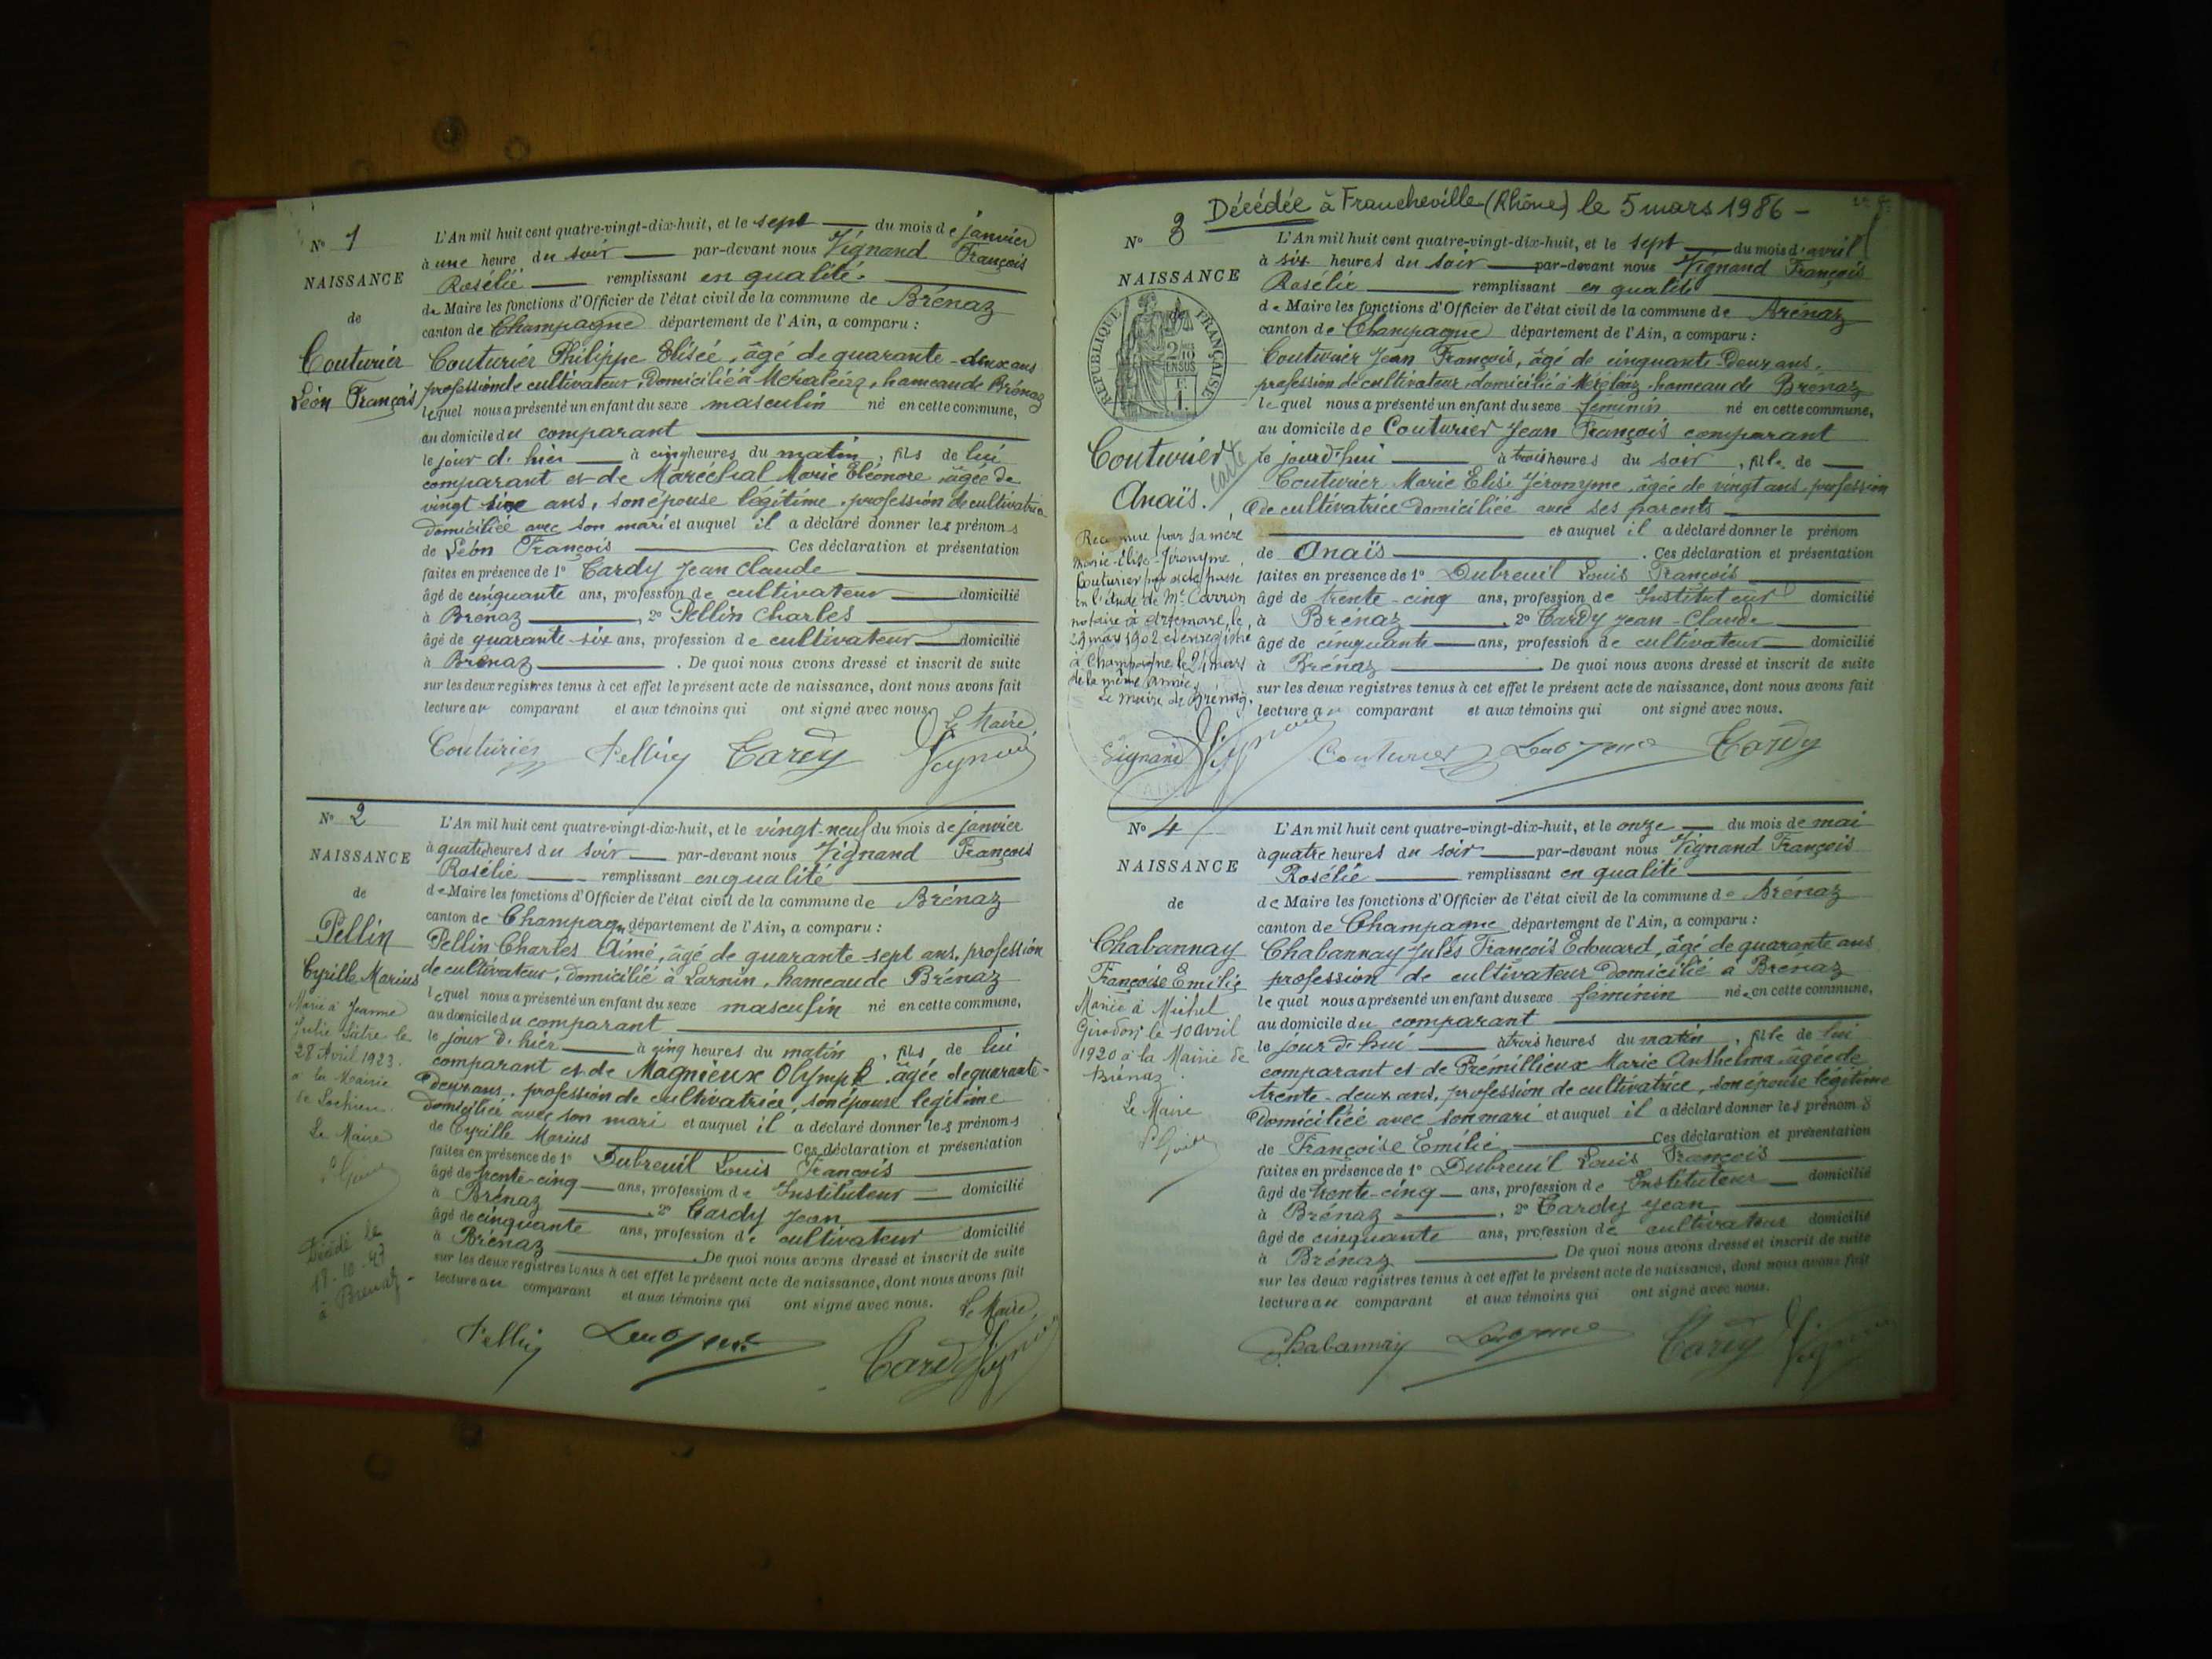 N° 1
NAISSANCE
de
Couturier
Léon François
L'An mil huit cent quatre-vingt-dix-huit, et le sept du mois de janvier
à une heure du soir par-devant nous Vignand François
Rosélie remplissant en qualité
de Maire les fonctions d'Officier de l'état civil de la commune de Brénaz
canton de Champagne département de l'Ain, a comparu :
Couturier Philippe Elisée, âgé de quarante-deux ans
profession de cultivateur, domicilié à Méraléaz, hameau de Brénaz
lequel nous a présenté un enfant du sexe masculin né en cette commune,
au domicile du comparant
le jour d'hier à cinq heures du matin, fils de lui
comparant et de Maréchal Marie Eléonore âgée de
vingt six ans, son épouse légitime, profession de cultivatrice
domiciliée avec son mari et auquel il a déclaré donner les prénoms
de Léon François Ces déclaration et présentation
faites en présence de 1° Tardy Jean Claude
âgé de cinquante ans, profession de cultivateur domicilié
à Brénaz, 2° Pellin Charles
âgé de quarante-six ans, profession de cultivateur domicilié
à Brénaz. De quoi nous avons dressé et inscrit de suite
sur les deux registres tenus à cet effet le présent acte de naissance, dont nous avons fait
lecture au comparant et aux témoins qui ont signé avec nous.
Le Maire
Couturier Pellin Tardy Vignand
N° 2
NAISSANCE
de
Pellin
Cyrille Marius
Marié à Jeanne
Julie Sâtre le
28 Avril 1923.
à la Mairie
de
Le Maire
Décédé le
17-10-47
à Brenaz-
L'An mil huit cent quatre-vingt-dix-huit, et le vingt-neuf du mois de janvier
à quatre heures du soir par-devant nous Vignand François
Rosélie remplissant en qualité
de Maire les fonctions d'Officier de l'état civil de la commune de Brénaz
canton de Champagne département de l'Ain, a comparu :
Pellin Charles Aimé, âgé de quarante-sept ans, profession
de cultivateur, domicilié à Larnin, hameau de Brénaz
lequel nous a présenté un enfant du sexe masculin né en cette commune,
au domicile du comparant
le jour d'hier à cinq heures du matin, fils de lui
comparant et de Magnieux Olympe âgée de quarante-
deux ans, profession de cultivatrice, son épouse légitime
domiciliée avec son mari et auquel il a déclaré donner les prénoms
de Cyrille Marius Ces déclaration et présentation
faites en présence de 1° Dubreuil Louis François
âgé de trente-cinq ans, profession de Instituteur domicilié
à Brénaz, 2° Tardy Jean
âgé de cinquante ans, profession de cultivateur domicilié
à Brénaz De quoi nous avons dressé et inscrit de suite
sur les deux registres tenus à cet effet le présent acte de naissance, dont nous avons fait
lecture au comparant et aux témoins qui ont signé avec nous.
Le Maire,
Pellin Tardy Vignand
Décédée à Francheville (Rhône) le 5 mars 1986 -
N° 3
NAISSANCE
de
RÉPUBLIQUE FRANÇAISE
2/10 EN SUS
Couturier
Anaïs.
carte
Reconnue par sa mère
Marie-Elise-Jéronyme
Couturier par acte passé
en l'étude de Me Carron
notaire à Artemare, le
23 mars 1902 et enregistré
à Champagne le 24 mars
de la même année,
Le maire de Brénaz.
Vignand
L'An mil huit cent quatre-vingt-dix-huit, et le sept du mois d'avril
à six heures du soir par-devant nous Vignand François
Rosélie remplissant en qualité
de Maire les fonctions d'Officier de l'état civil de la commune de Brénaz
canton de Champagne département de l'Ain, a comparu :
Couturier Jean François, âgé de cinquante-deux ans,
profession de cultivateur domicilié à Méraléaz hameau de Brénaz
lequel nous a présenté un enfant du sexe féminin né en cette commune,
au domicile de Couturier Jean François comparant
le jour d'hui à trois heures du soir, fille de
Couturier Marie Elise Jéronyme, âgée de vingt ans, profession
de cultivatrice domiciliée avec ses parents
et auquel il a déclaré donner le prénom
de Anaïs. Ces déclaration et présentation
faites en présence de 1° Dubreuil Louis François
âgé de trente-cinq ans, profession de Instituteur domicilié
à Brénaz, 2° Tardy Jean-Claude
âgé de cinquante ans, profession de cultivateur domicilié
à Brénaz De quoi nous avons dressé et inscrit de suite
sur les deux registres tenus à cet effet le présent acte de naissance, dont nous avons fait
lecture au comparant et aux témoins qui ont signé avec nous.
Couturier Tardy
N° 4
NAISSANCE
de
Chabannay
Françoise Emilie
Mariée à Michel
Girodon le 10 avril
1920 à la Mairie de
Brénaz.
Le Maire
L'An mil huit cent quatre-vingt-dix-huit, et le onze du mois de mai
à quatre heures du soir par-devant nous Vignand François
Rosélie remplissant en qualité
de Maire les fonctions d'Officier de l'état civil de la commune de Brénaz
canton de Champagne département de l'Ain, a comparu :
Chabannay Jules François Edouard, âgé de quarante ans
profession de cultivateur domicilié à Brénaz
lequel nous a présenté un enfant du sexe féminin née en cette commune,
au domicile du comparant
le jour d'hui à trois heures du matin, fille de lui
comparant et de Prémillieux Marie Anthelma âgée de
trente-deux ans, profession de cultivatrice, son épouse légitime
domiciliée avec son mari et auquel il a déclaré donner les prénoms
de Françoise Emilie Ces déclaration et présentation
faites en présence de 1° Dubreuil Louis François
âgé de trente-cinq ans, profession de Instituteur domicilié
à Brénaz, 2° Tardy Jean
âgé de cinquante ans, profession de cultivateur domicilié
à Brénaz De quoi nous avons dressé et inscrit de suite
sur les deux registres tenus à cet effet le présent acte de naissance, dont nous avons fait
lecture au comparant et aux témoins qui ont signé avec nous.
Chabannay Tardy Vignand